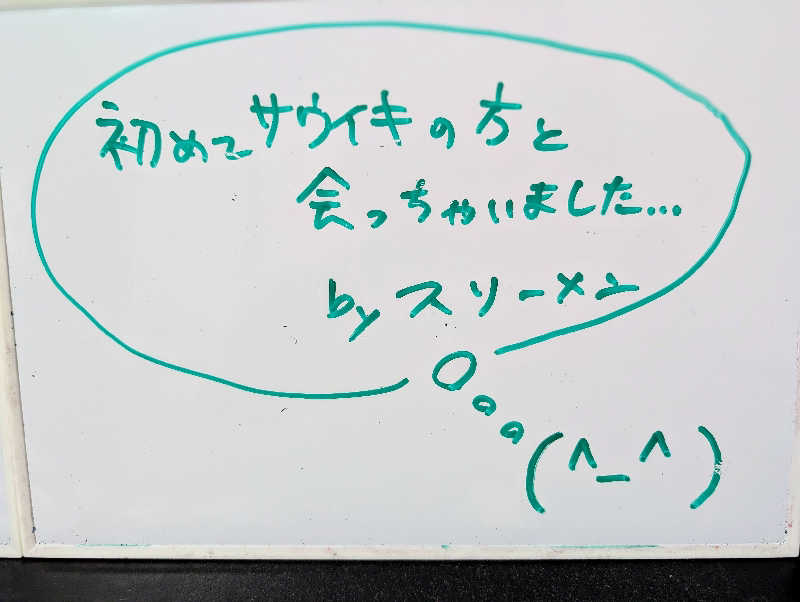 初めてサウイキの方と
会っちゃいました...
by スリーメン
(^_^)